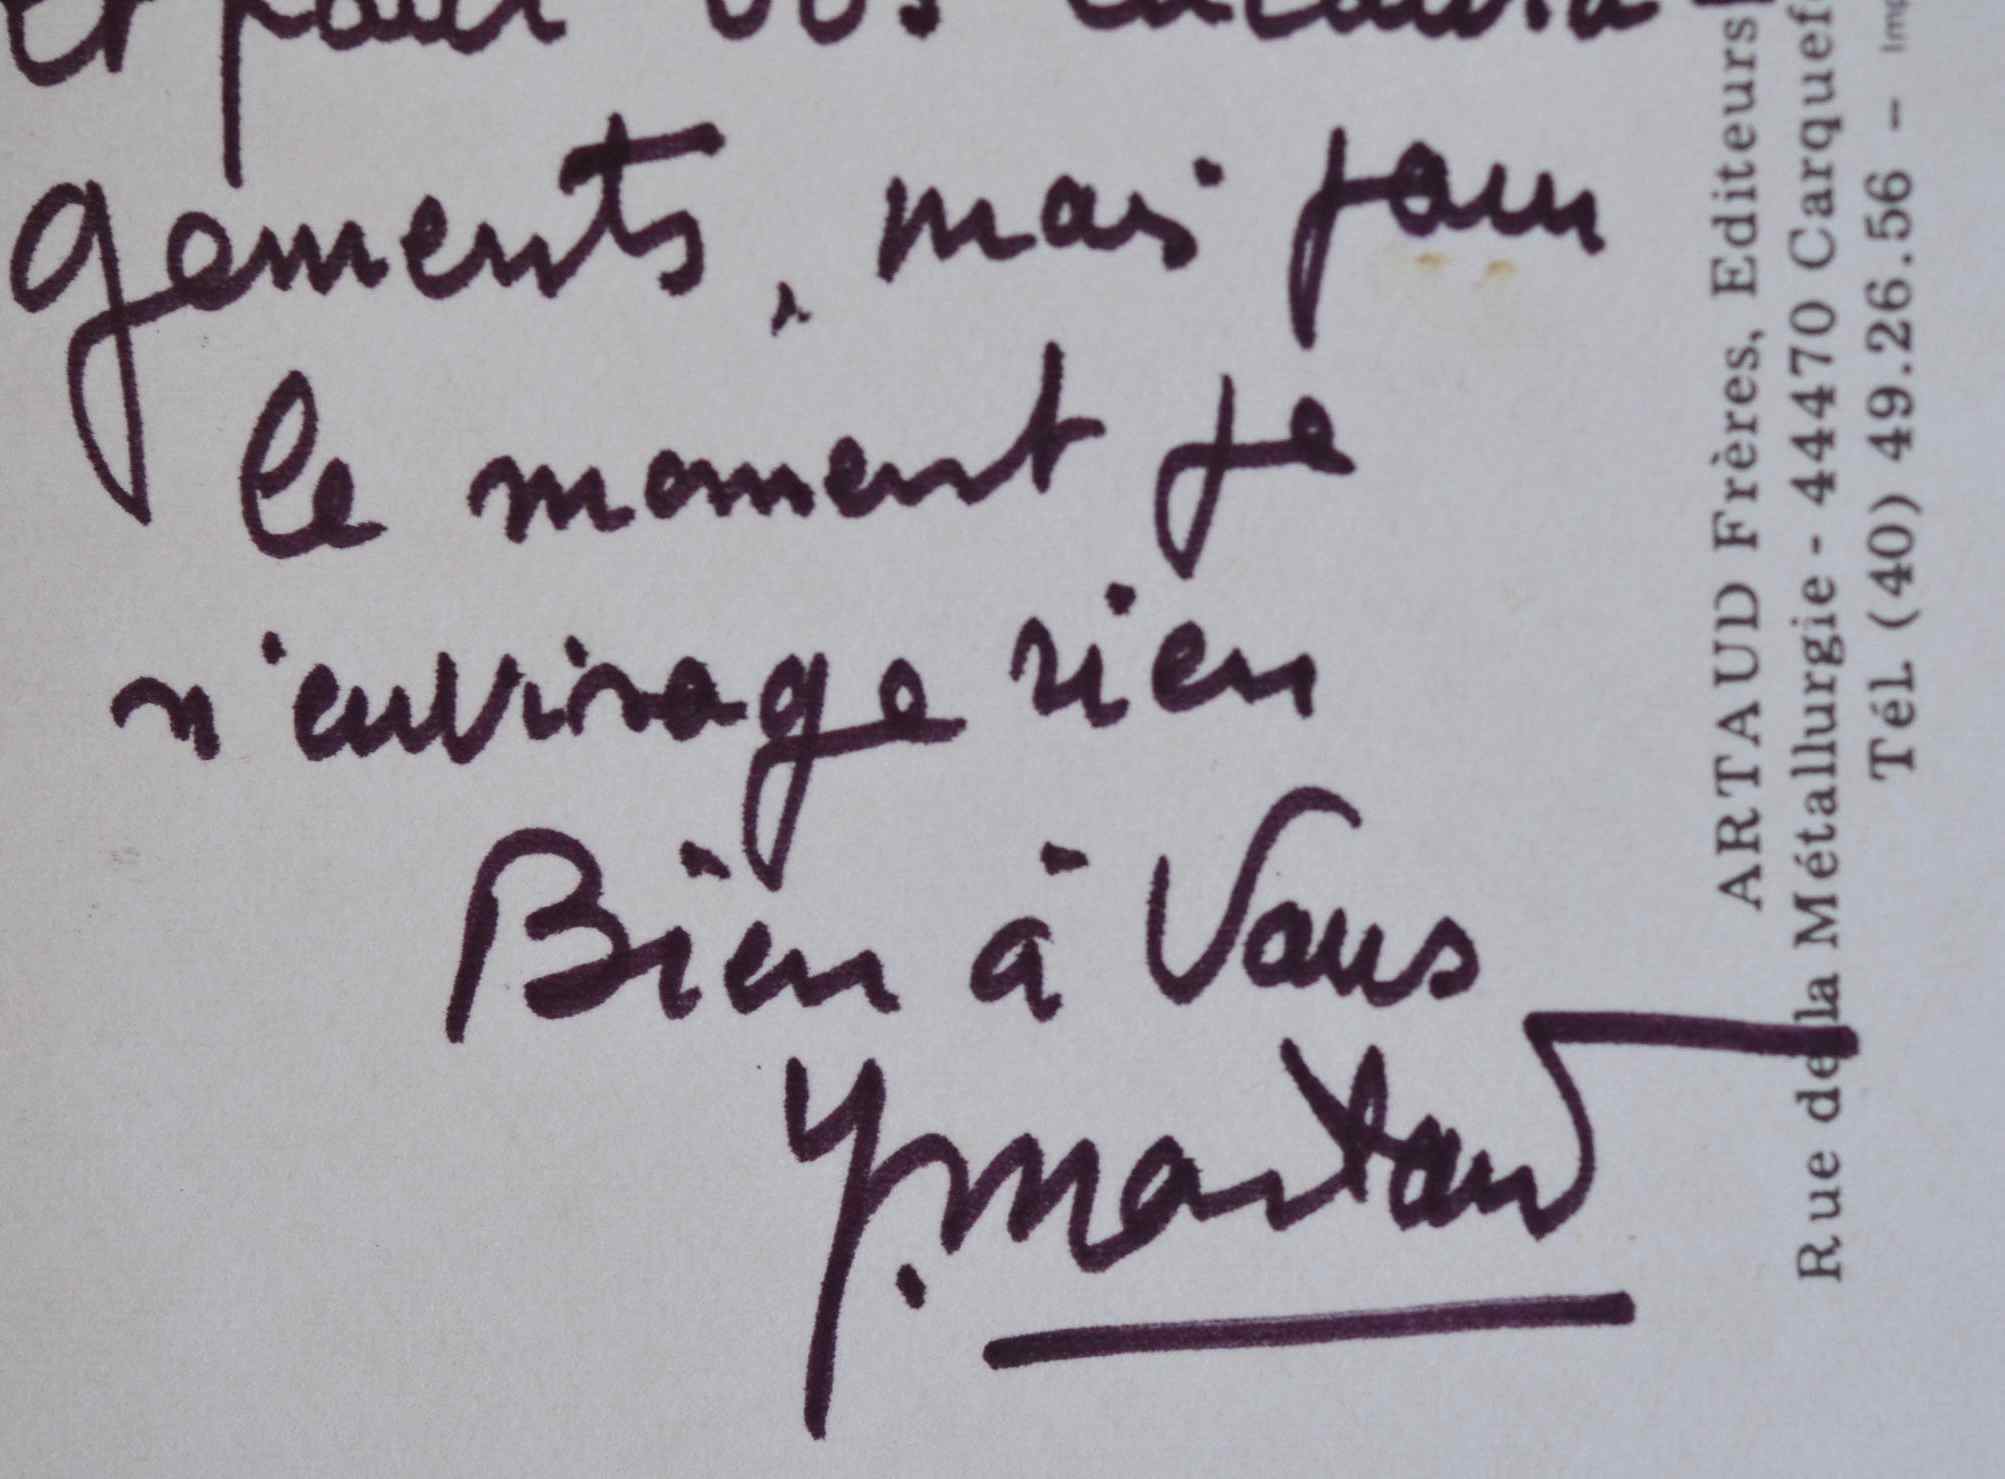 et pour vos encoura
gements, mais pour
le moment je
n'envisage rien
Bien à Vous
Y.
ARTAUD Frères, Editeurs
Rue de la Métallurgie - 44470 Carquef
Tél. (40) 49.26.56 - Imp